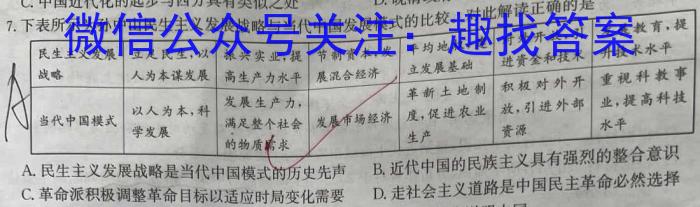 C. 中国近代化的起步与四方具有类似之处
7. 下表所 孙中山民生主义发展战略与 代中国发展模式的比较，对此解读正确的是
微信公众号关注：趣找答案
民生主义发展战略 立足民生，以人为本谋发展 振兴实业，提高生产力水平 节制资本，发展混合经济 平均地 立发展基础 进资金和技术 教育，提 技术水平
当代中国模式 以人为本，科学发展 发展生产力，满足整个社会的物质需求 发展市场经济 革新土地制度，促进农业生产 积极对外开放，引进外部资源 重视科教事业，提高科技水平
A. 民生主义发展战略是当代中国模式的历史先声 B. 近代中国的民族主义具有强烈的整合意识
C. 革命派积极调整革命目标以适应时局变化需要 D. 走社会主义道路是中国民主革命必然选择